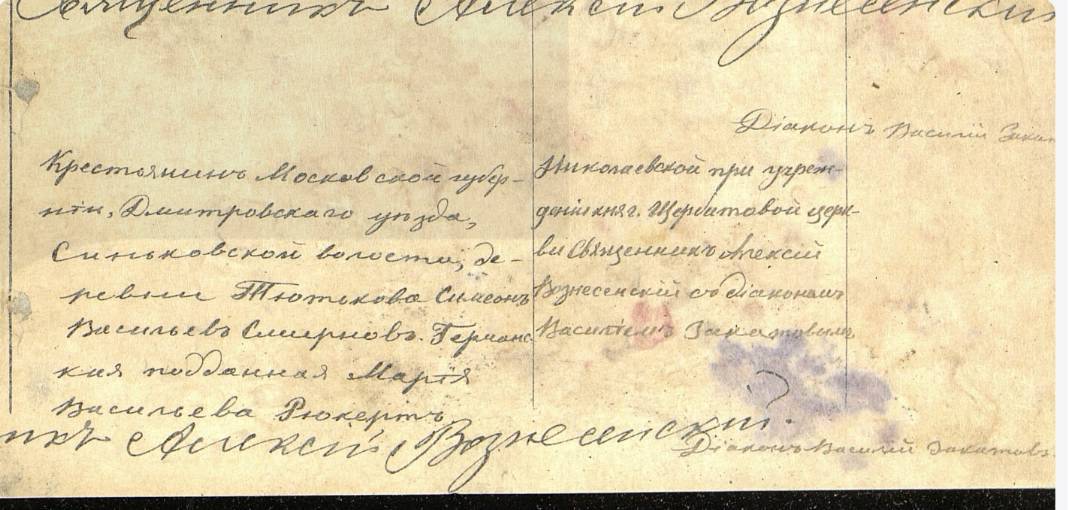 Священникъ Алексій Вознесенскій
Діаконъ Василій Зака
Крестьянинъ Московской губер-
ніи, Дмитровскаго уѣзда,
Синьковской волости, де-
ревни Тютькова Симеонъ
Васильевъ Смирновъ. Германс
кая подданная Марія
Васильева Рюкертъ
Николаевской при учреж-
деніи княг. Щербатовой церк-
ви Священникъ Алексій
Вознесенскій съ діакономъ
Василіемъ Закатовымъ
икъ Алексій Вознесенскій.
Діаконъ Василій Закатовъ